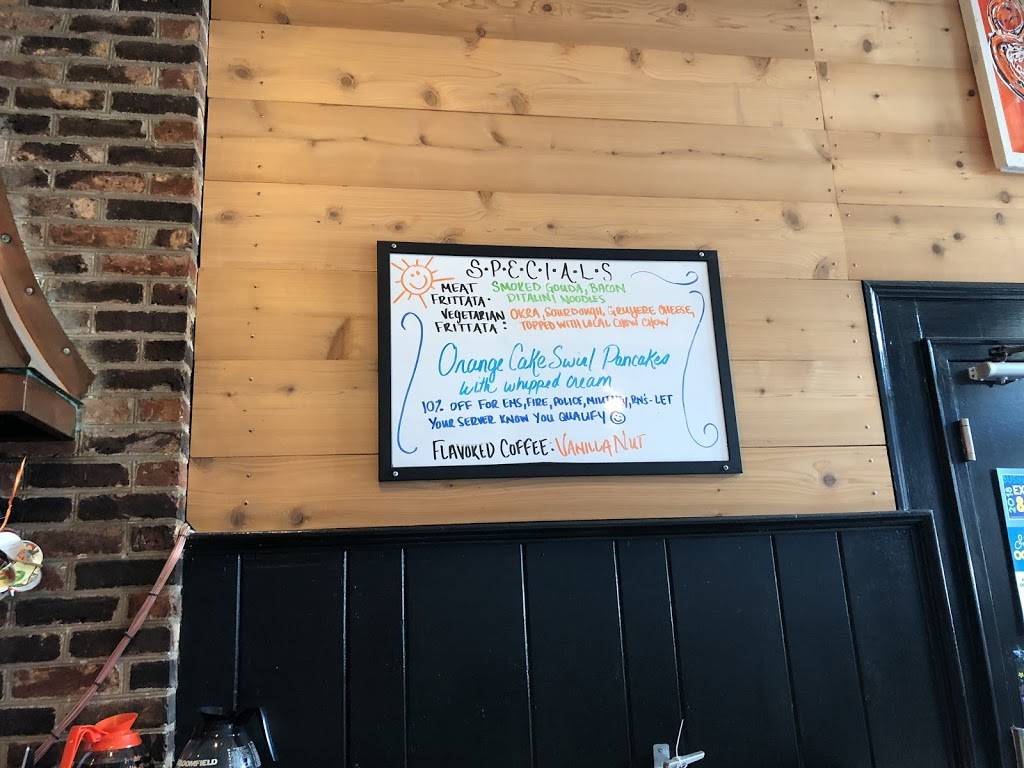 S·P·E·C·I·A·L·S
MEAT FRITTATA· SMOKED GOUDA, BACON
DITALINI NOODLES
VEGETARIAN FRITTATA: OKRA, SOURDOUGH, GRUYERE CHEESE,
TOPPED WITH LOCAL CHOW CHOW
Orange Cake Swirl Pancakes
with whipped cream
10% OFF FOR EMS, FIRE, POLICE, MILITARY, RN'S - LET
YOUR SERVER KNOW YOU QUALIFY
FLAVORED COFFEE: VANILLA NUT
OOMFIELD
EX